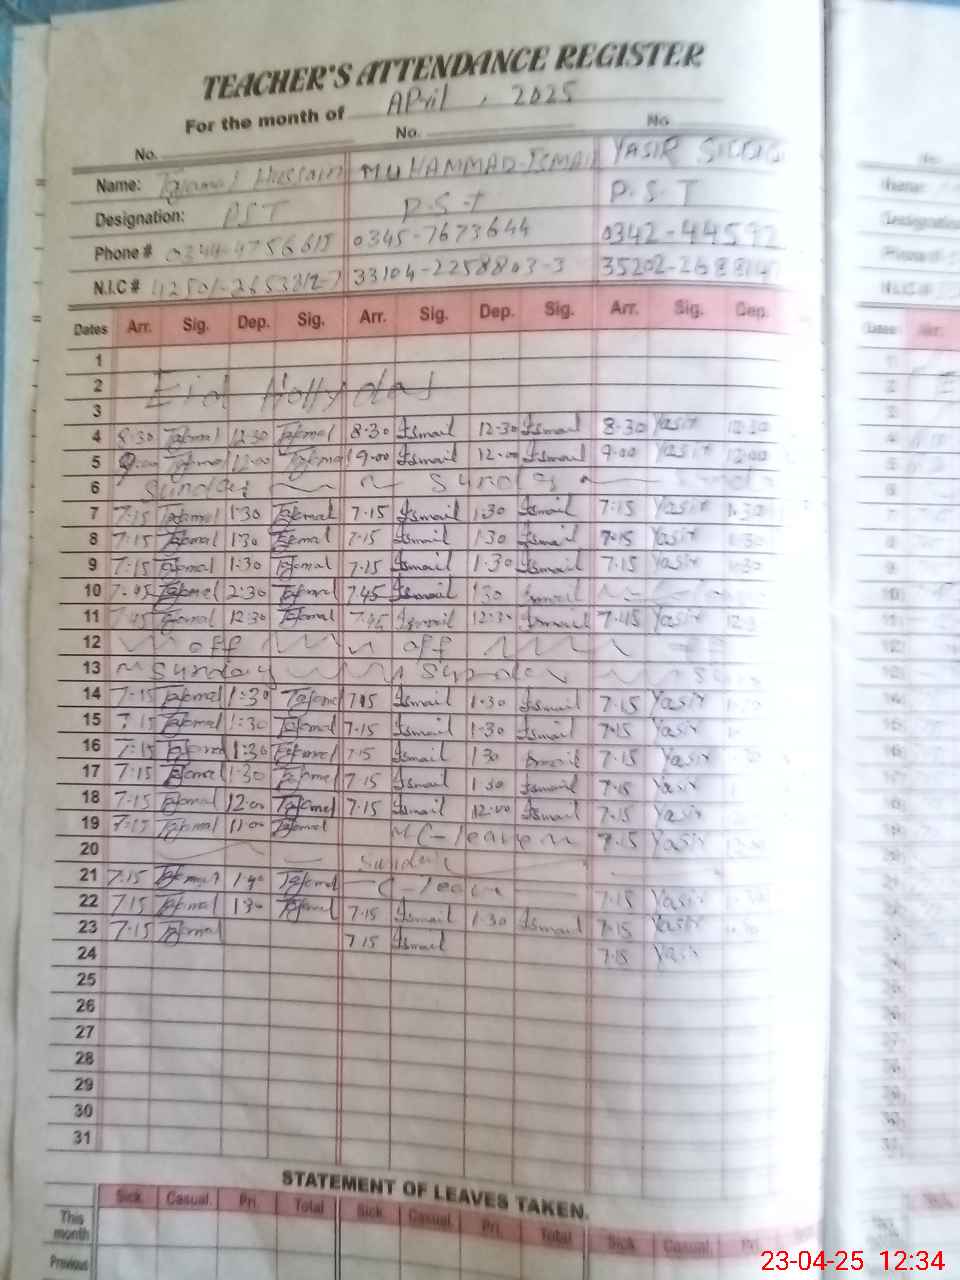 TEACHER'S ATTENDANCE REGISTER
For the month of April, 2025
No. No. No.
Name: Tajamal Hussain MUHAMMAD ISMAIL YASIR
Designation: PST P.S.T P.S.T
Phone # 0345-7673644
N.I.C # 33104-2258803-3
Dates Arr. Sig. Dep. Sig. Arr. Sig. Dep. Sig. Arr. Sig. Dep.
1
2 Eid
3
4 8:30 Tajamal 12:30 Tajamal 8:30 Ismail 12:30 Ismail 8:30 Yasir 12:30
5 9:00 Tajamal 12:00 Tajamal 9:00 Ismail 12:00 Ismail 9:00 Yasir 12:00
6 Sunday Sunday
7 7:15 Tajamal 1:30 Tajamal 7:15 Ismail 1:30 Ismail 7:15 Yasir 1:30
8 7:15 Tajamal 1:30 Tajamal 7:15 Ismail 1:30 Ismail 7:15 Yasir 1:30
9 7:15 Tajamal 1:30 Tajamal 7:15 Ismail 1:30 Ismail 7:15 Yasir 1:30
10 7:45 Tajamal 2:30 Tajamal 7:45 Ismail 1:30 Ismail
11 7:45 Tajamal 12:30 Tajamal 7:45 Ismail 12:30 Ismail 7:45 Yasir
12 off off
13 Sunday Sunday
14 7:15 Tajamal 1:30 Tajamal 7:15 Ismail 1:30 Ismail 7:15 Yasir
15 7:15 Tajamal 1:30 Tajamal 7:15 Ismail 1:30 Ismail 7:15 Yasir
16 7:15 Tajamal 1:30 Tajamal 7:15 Ismail 1:30 Ismail 7:15 Yasir
17 7:15 Tajamal 1:30 Tajamal 7:15 Ismail 1:30 Ismail 7:15 Yasir
18 7:15 Tajamal 12:00 Tajamal 7:15 Ismail 12:00 Ismail 7:15 Yasir
19 7:15 Tajamal 11:00 Tajamal C-leave 7:15 Yasir
20 Sunday
21 7:15 Tajamal Tajamal C-leave 7:15 Yasir
22 7:15 Tajamal 1:30 Tajamal 7:15 Ismail 1:30 Ismail 7:15 Yasir
23 7:15 Tajamal 7:15 Ismail 7:15 Yasir
24
25
26
27
28
29
30
31
STATEMENT OF LEAVES TAKEN.
Sick Casual. Pri. Total Sick Casual. Pri. Total Sick Casual.
This month
Previous
23-04-25 12:34